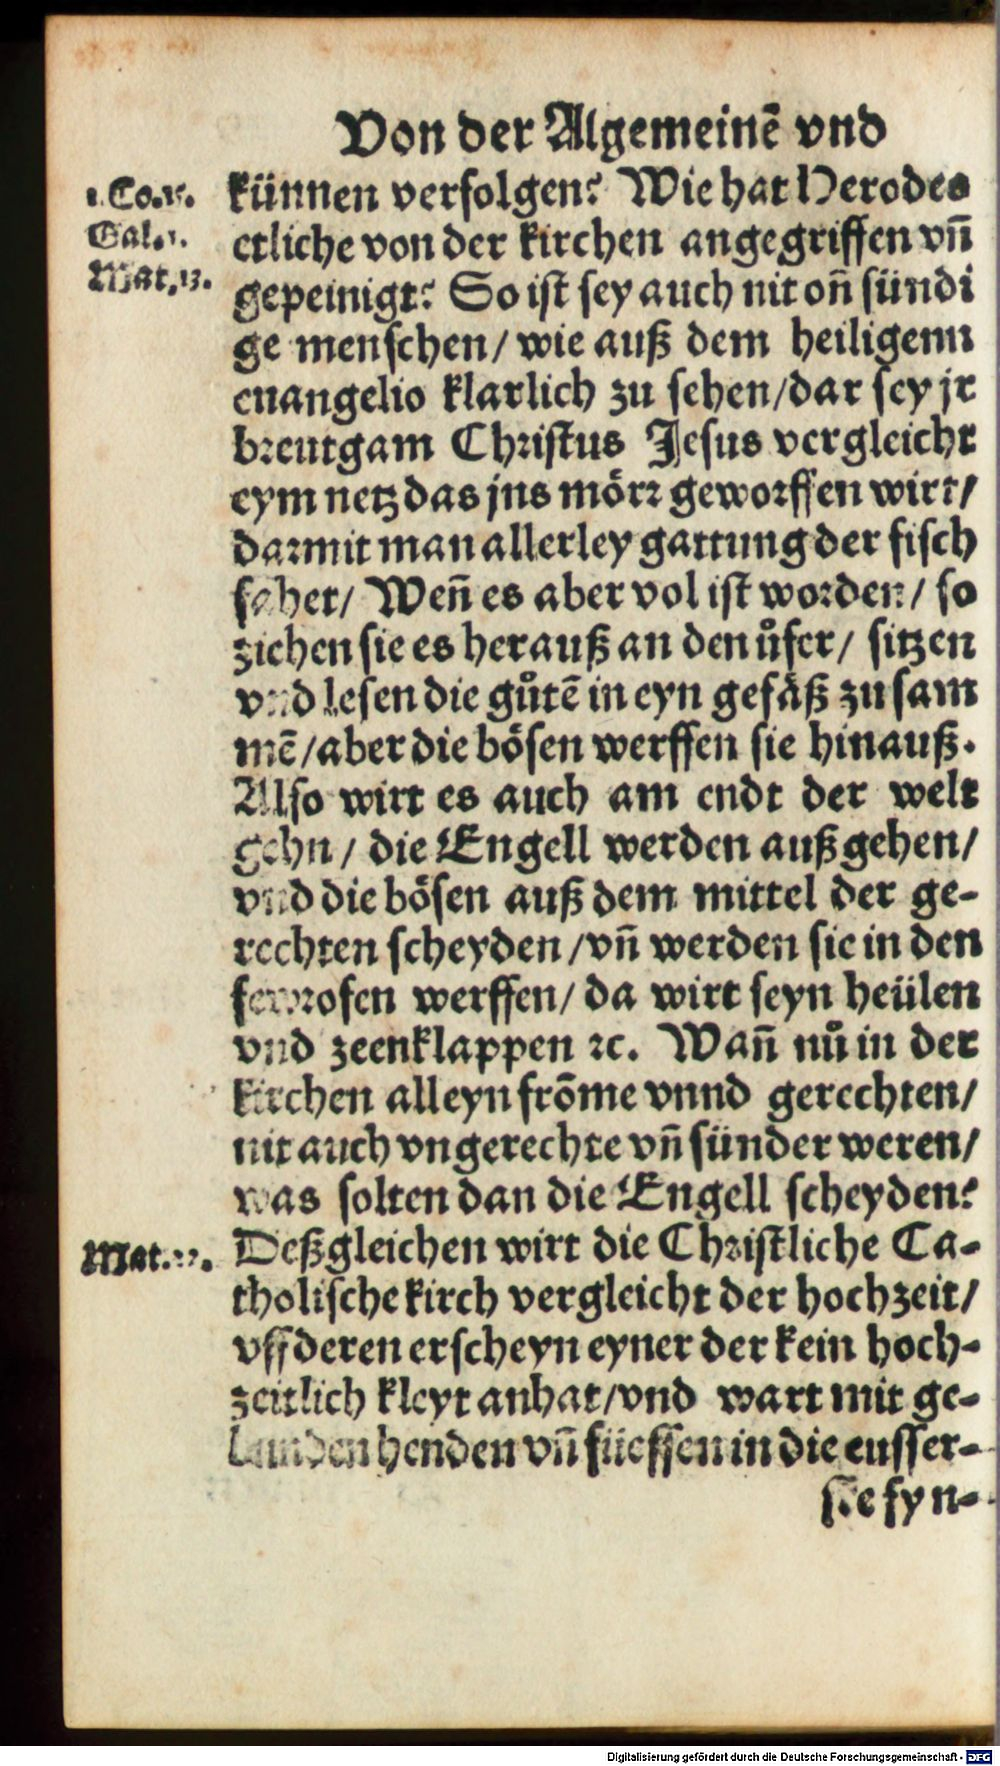 Von der Algemeinē vnd
1. Co. 15.
Gal. 1.
Mat. 13.
künnen verfolgen? Wie hat Herodes
etliche von der kirchen angegriffen vñ
gepeinigt? So ist sey auch nit oñ sündi
ge menschen / wie auß dem heiligenn
euangelio klarlich zu sehen / dar sey jr
breutgam Christus Jesus vergleicht
eym netz das jns mörr geworffen wirt /
darmit man allerley gattung der fisch
faher / Weñ es aber vol ist worden / so
ziehen sie es herauß an den ůfer / sitzen
vnd lesen die gůtē in eyn gefäß zu sam
mē / aber die bösen werffen sie hinauß.
Also wirt es auch am endt der welt
gehn / die Engell werden auß gehen /
vnd die bösen auß dem mittel der ge-
rechten scheyden / vñ werden sie in den
fewrofen werffen / da wirt seyn heülen
vnd zeenklappen ꝛc. Wañ nů in der
kirchen alleyn frōme vnnd gerechten /
nit auch vngerechte vñ sünder weren /
was solten dan die Engell scheyden?
Mat. 22.
Deßgleichen wirt die Christliche Ca-
tholische kirch vergleicht der hochzeit /
vff deren erscheyn eyner der kein hoch-
zeitlich kleyt anhat / vnd wart mit ge-
bunden henden vñ füessen in die eusser-
ste fyn-
Digitalisierung gefördert durch die Deutsche Forschungsgemeinschaft - DFG